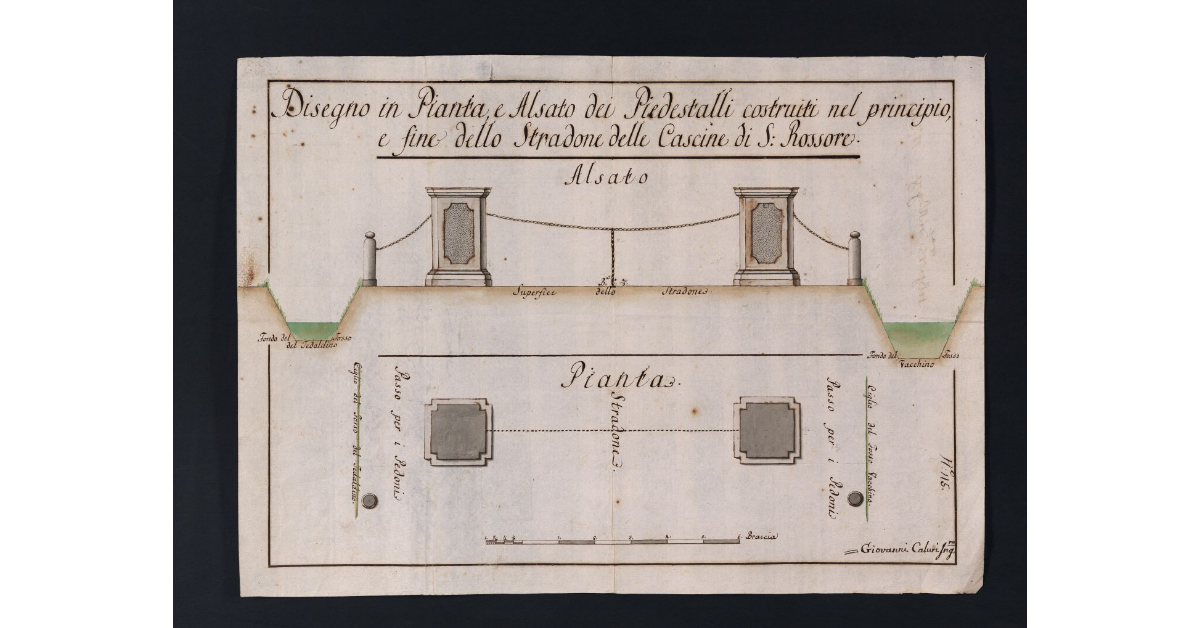 Disegno in Pianta, e Alsato dei Piedestalli costruiti nel principio,
e fine dello Stradone delle Cascine di S: Rossore.
Alsato
Superfice dello Stradone
Fondo del Fosso
del Tedaldino
Fondo del Fosso
Vacchino
Pianta.
Ciglio del Fosso del Tedaldino.
Passo per i Pedoni
Stradone.
Passo per i Pedoni
Ciglio del Fosso Vacchino.
Braccia
Giovanni Caluri Ing.re